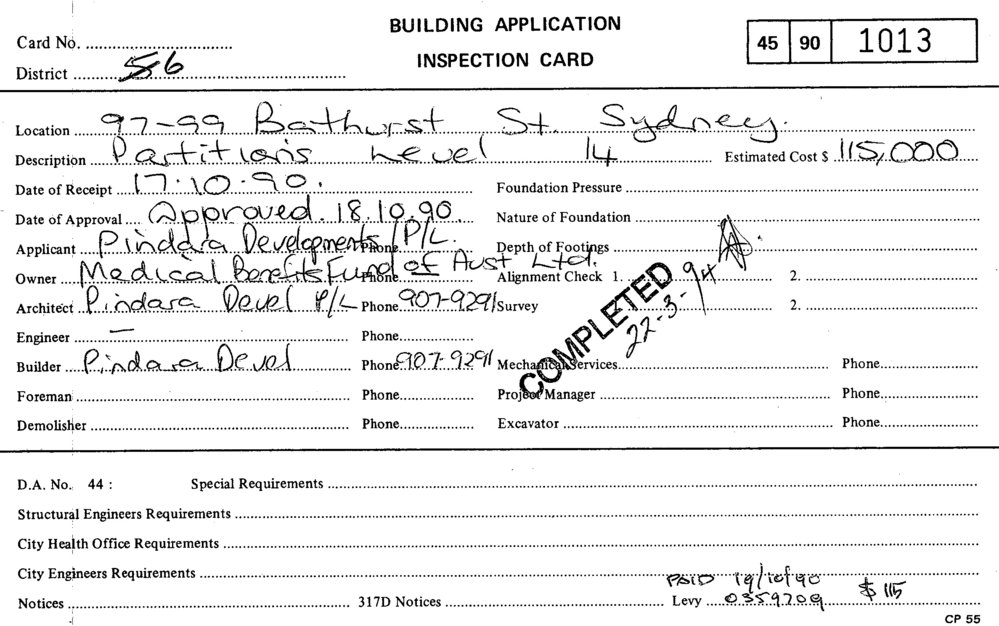 BUILDING APPLICATION
INSPECTION CARD
Card No. ....................................
District ........ 56 ........
45 90 1013
Location ........ 97-99 Bathurst St. Sydney.
Description ........ Partitions Level 14 Estimated Cost $ 115,000
Date of Receipt ... 17.10.90. Foundation Pressure ........
Date of Approval ... Approved. 18.10.90. Nature of Foundation ........
Applicant ... Pindara Developments P/L. Phone Depth of Footings ........
Owner ... Medical Benefits Fund of Aust Ltd. Phone Alignment Check 1. ........ 2. ........
Architect ... Pindara Devel P/L Phone 907-9291 Survey ........ 2. ........
COMPLETED
22-3-94
Engineer ... — Phone........
Builder ... Pindara Devel Phone 907-9291 Mechanical Services........ Phone........
Foreman ........ Phone........ Project Manager ........ Phone........
Demolisher ........ Phone........ Excavator ........ Phone........
D.A. No. 44 : Special Requirements ........
Structural Engineers Requirements ........
City Health Office Requirements ........
City Engineers Requirements ........
PAID 19/10/90 $ 115
Notices ........ 317D Notices ........ Levy ... 0359709
CP 55